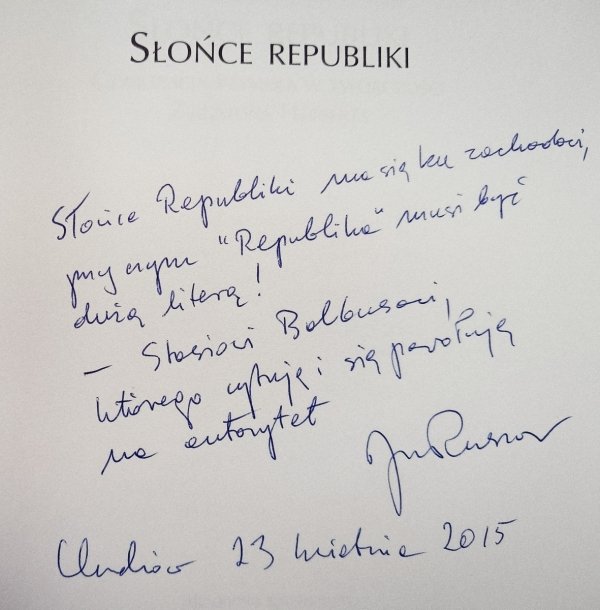 SŁOŃCE REPUBLIKI
Słońce Republiki ma się ku zachodowi,
przy czym "Republika" musi być
dużą literą!
— Stasiowi Balbusowi,
którego cytuję i się powołuję
na autorytet
23 kwietnia 2015